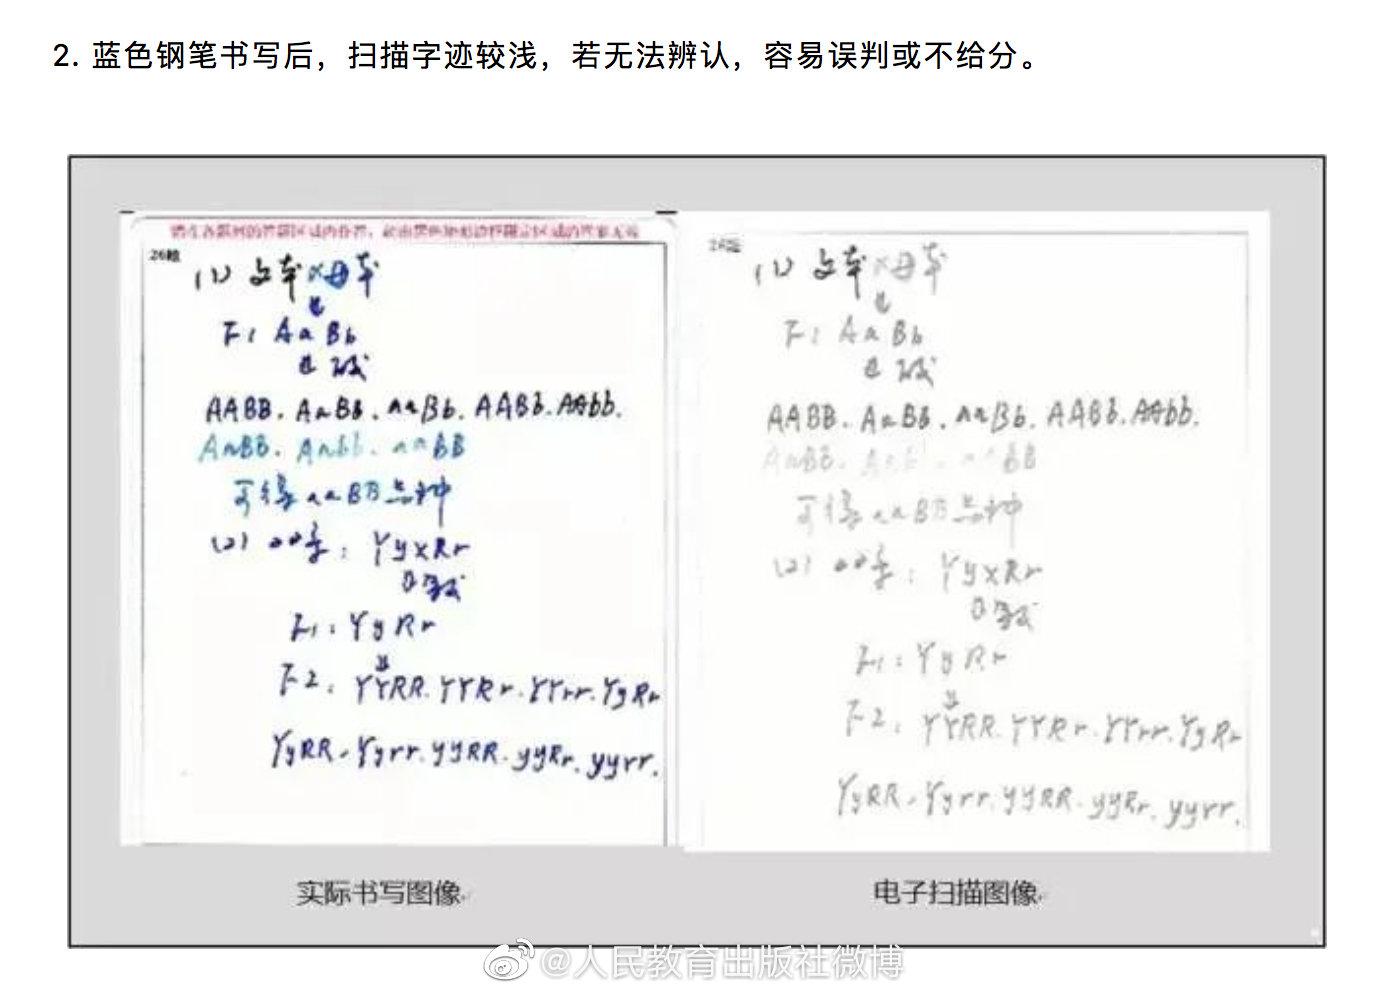 2. 蓝色钢笔书写后，扫描字迹较浅，若无法辨认，容易误判或不给分。
请在各题目的答题区域内作答，超出黑色矩形边框限定区域的答案无效
26题
(1) 父本×母本
F1 AaBb
AABB. AaBb. aaBb. AABb. AAbb.
AaBB. Aabb. aaBB
可得aaBB品种
(2) YyxRr
F1: YyRr
F2: YYRR. YYRr. YYrr. YyRr
YyRR. Yyrr. yyRR. yyRr. yyrr.
26题
(1) 父本×母本
F1 AaBb
AABB. AaBb. aaBb. AABb. AAbb.
可得aaBB品种
(2) YyxRr
F1: YyRr
F2: YYRR. YYRr. YYrr. YyRr
YyRR. Yyrr. yyRR. yyRr. yyrr.
实际书写图像
电子扫描图像
@人民教育出版社微博